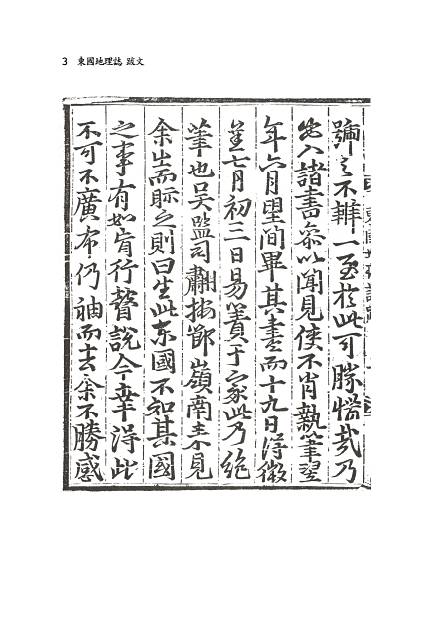 3 東國地理誌 跋文
號之不辨一至於此可勝惜哉乃
出入諸書參以聞見使不肖執筆翌
年六月望間畢其書而十九日得微
恙七月初三日易簀于家此乃絶
筆也吳監司䎘按節嶺南來見
余出而眎之則曰生此東國不知其國
之事有如盲行聾說今幸得此
不可不廣布仍袖而去余不勝感